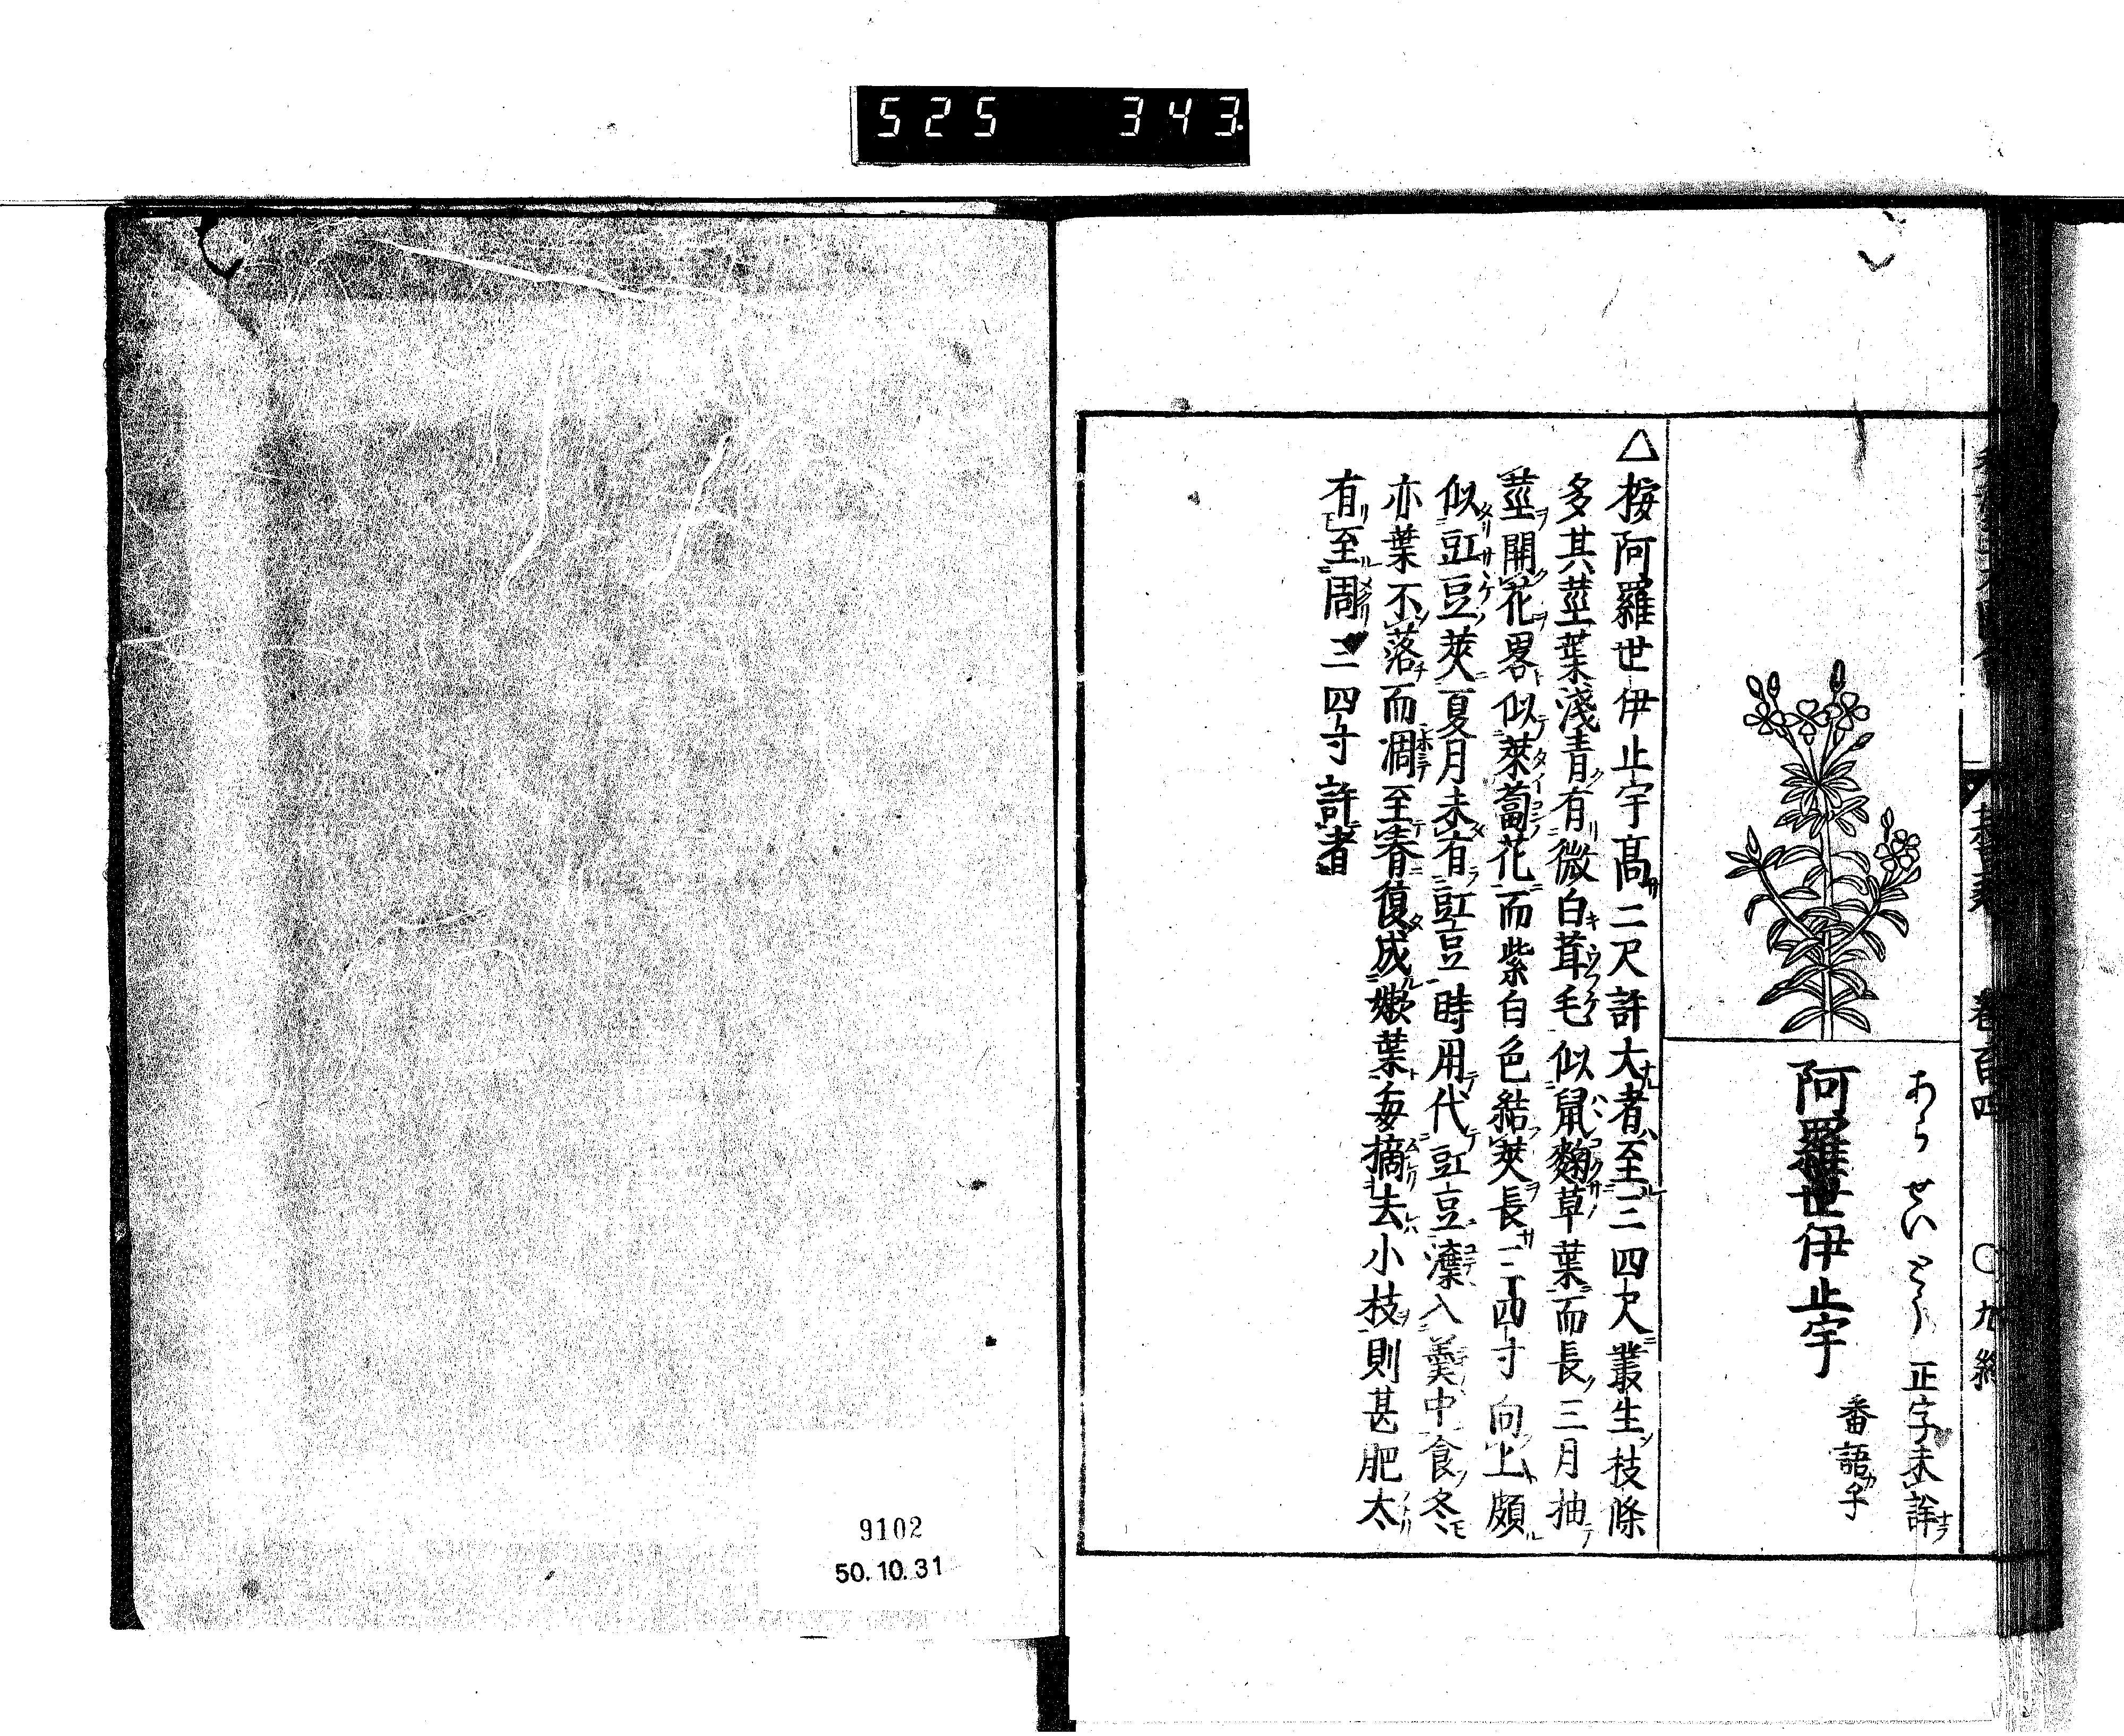 525 343
菽豆類 巻百四 〇 九終
あらせいとう 正字未詳
阿羅世伊止宇 番語乎
△按阿羅世伊止宇髙二尺許大者至三四尺叢生枝條
多其莖葉淺青有微白茸毛似鼠麴草葉而長三月抽
莖開花畧似萊蔔花而紫白色結莢長三四寸向上頗
似豇豆莢夏月未有豇豆時用代豇豆瀿入羹中食冬
亦葉不落而凋至春復成嫩葉毎摘去小枝則甚肥太
有至周三四寸許者
9102
50.10.31